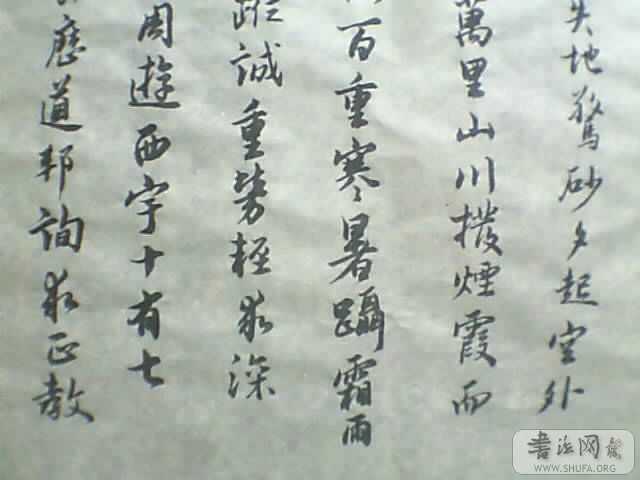 失地驚砂夕起空外
萬里山川撥煙霞而
百重寒暑躡霜雨
蹤誠重勞輕求深
周遊西宇十有七
歷道邦詢求正教
書法网
WWW.SHUFA.ORG